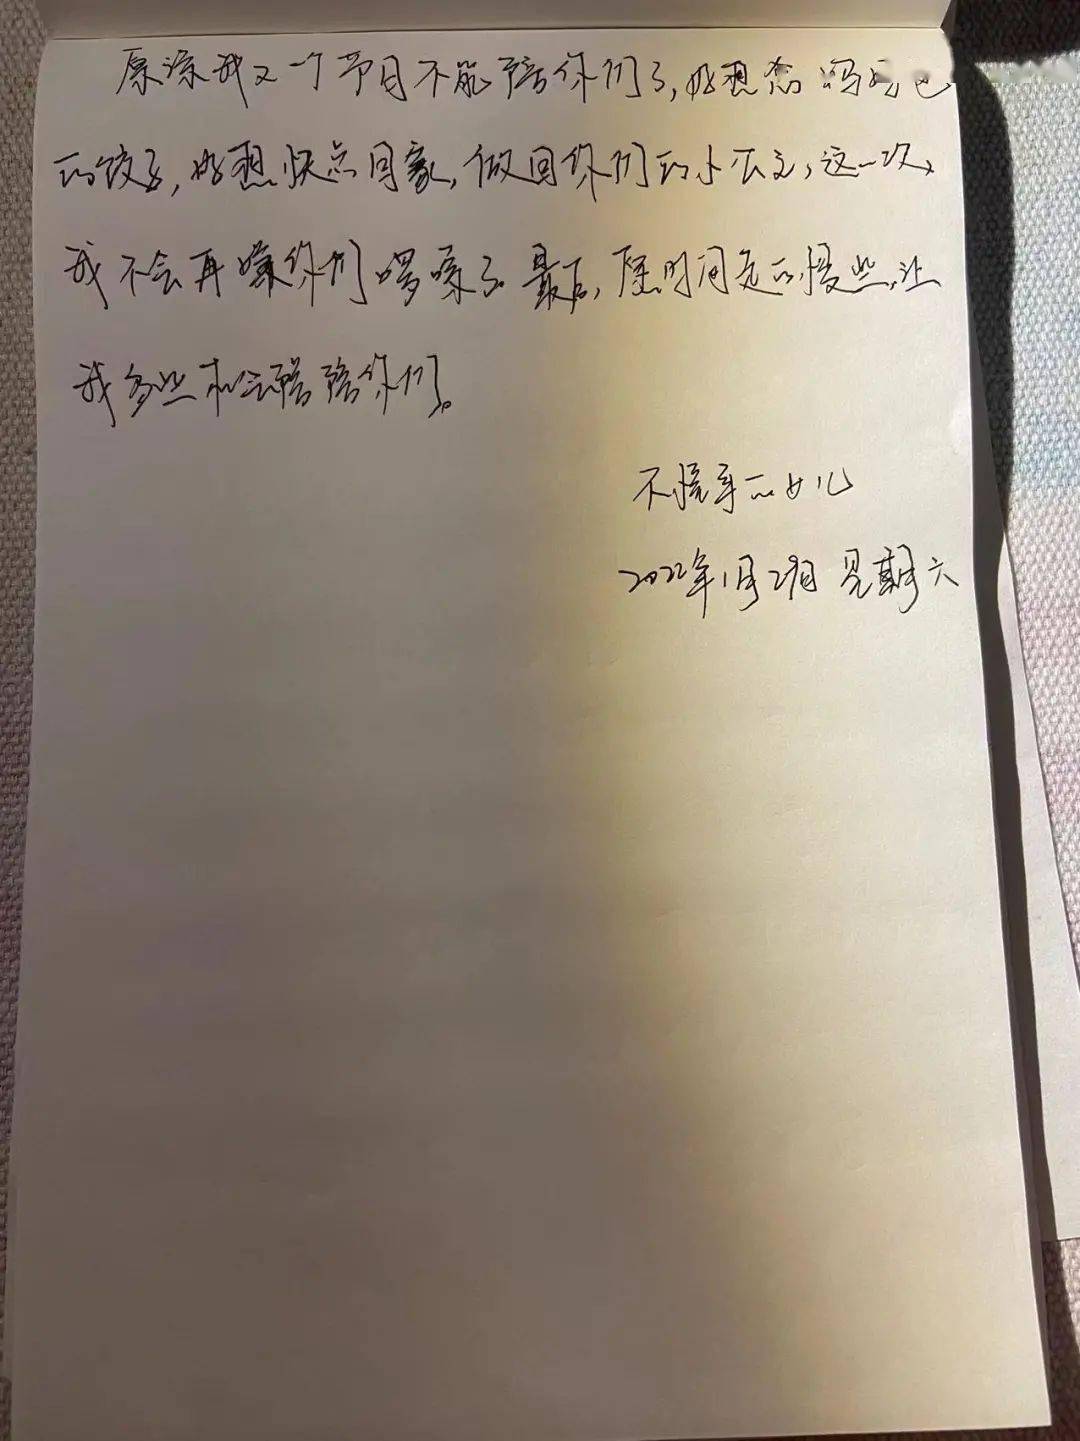 原谅我又一个节日不能陪你们了,好想念妈妈包
的饺子,好想快点回家,做回你们的小公主,这一次,
我不会再嫌你们啰嗦了。最后,愿时间走的慢些,让
我多些机会陪陪你们。
不懂事的女儿
2022年1月29日 星期六